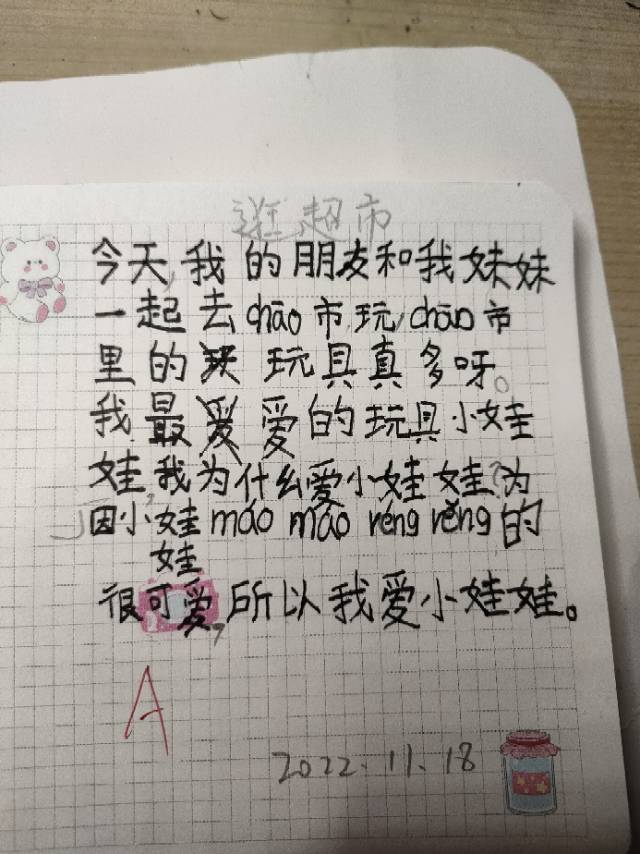 逛超市
今天,我的朋友和我妹妹
一起去chāo市玩,chāo市
里的玩具真多呀。
我最爱的玩具小娃
娃,我为什么爱小娃娃?为
因小娃娃máo máo réng rěng的
很可爱,所以我爱小娃娃。
A
2022.11.18